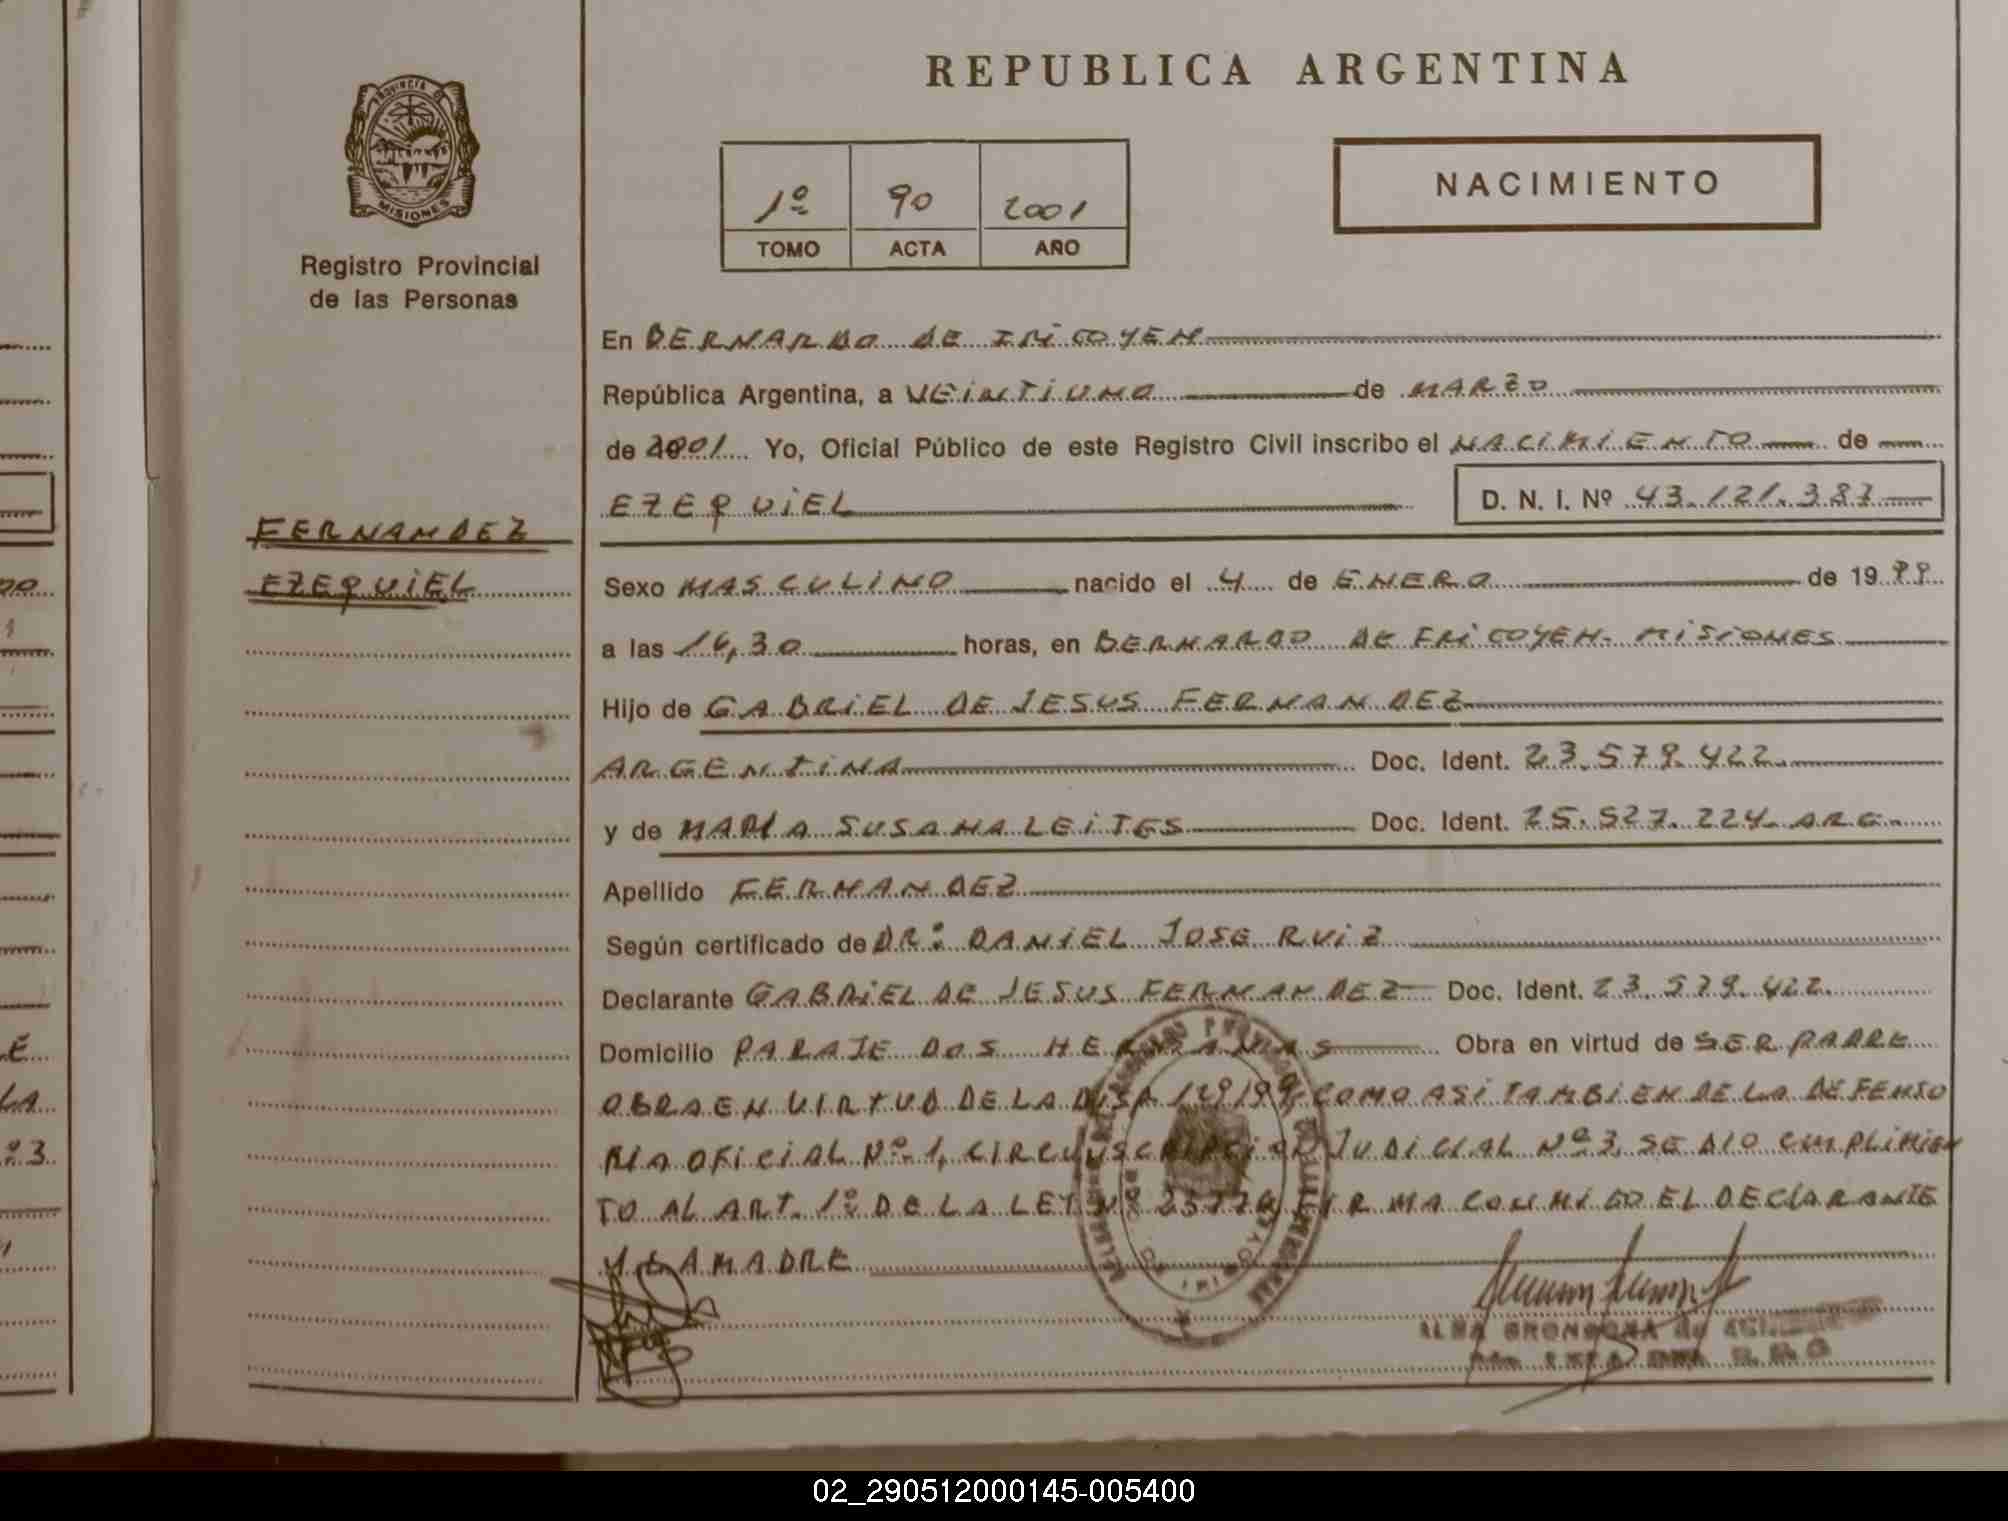 REPUBLICA ARGENTINA
PROVINCIA D
MISIONES
Registro Provincial
de las Personas
1º 90 2001
TOMO ACTA AÑO
NACIMIENTO
En BERNARDO DE IRIGOYEN
República Argentina, a VEINTIUNO de MARZO
de 2001 Yo, Oficial Público de este Registro Civil inscribo el NACIMIENTO de
EZEQUIEL D. N. I. Nº 43.121.387
FERNANDEZ
EZEQUIEL
Sexo MASCULINO nacido el 4 de ENERO de 1999
a las 14,30 horas, en BERNARDO DE IRIGOYEN- MISIONES
Hijo de GABRIEL DE JESUS FERNANDEZ
ARGENTINA Doc. Ident. 23.579.422
y de MARIA SUSANA LEITES Doc. Ident. 25.527.224. ARG.
Apellido FERNANDEZ
Según certificado de DR: DANIEL JOSE RUIZ
Declarante GABRIEL DE JESUS FERNANDEZ Doc. Ident. 23.579.422
Domicilio PARAJE DOS HERMANAS Obra en virtud de SER PADRE
OBRA EN VIRTUD DE LA COMO ASI TAMBIEN DE LA DEFENSO
RIA OFICIAL Nº 1, CIRCUNSCRIPCION JUDICIAL Nº 3, SE DIO CUMPLIMIEN
TO AL ART. 1º DE LA LEY Nº FIRMA CONMIGO EL DECLARANTE
Y LA MADRE
ALBA GRONDONA de
LA
º 3
02_290512000145-005400